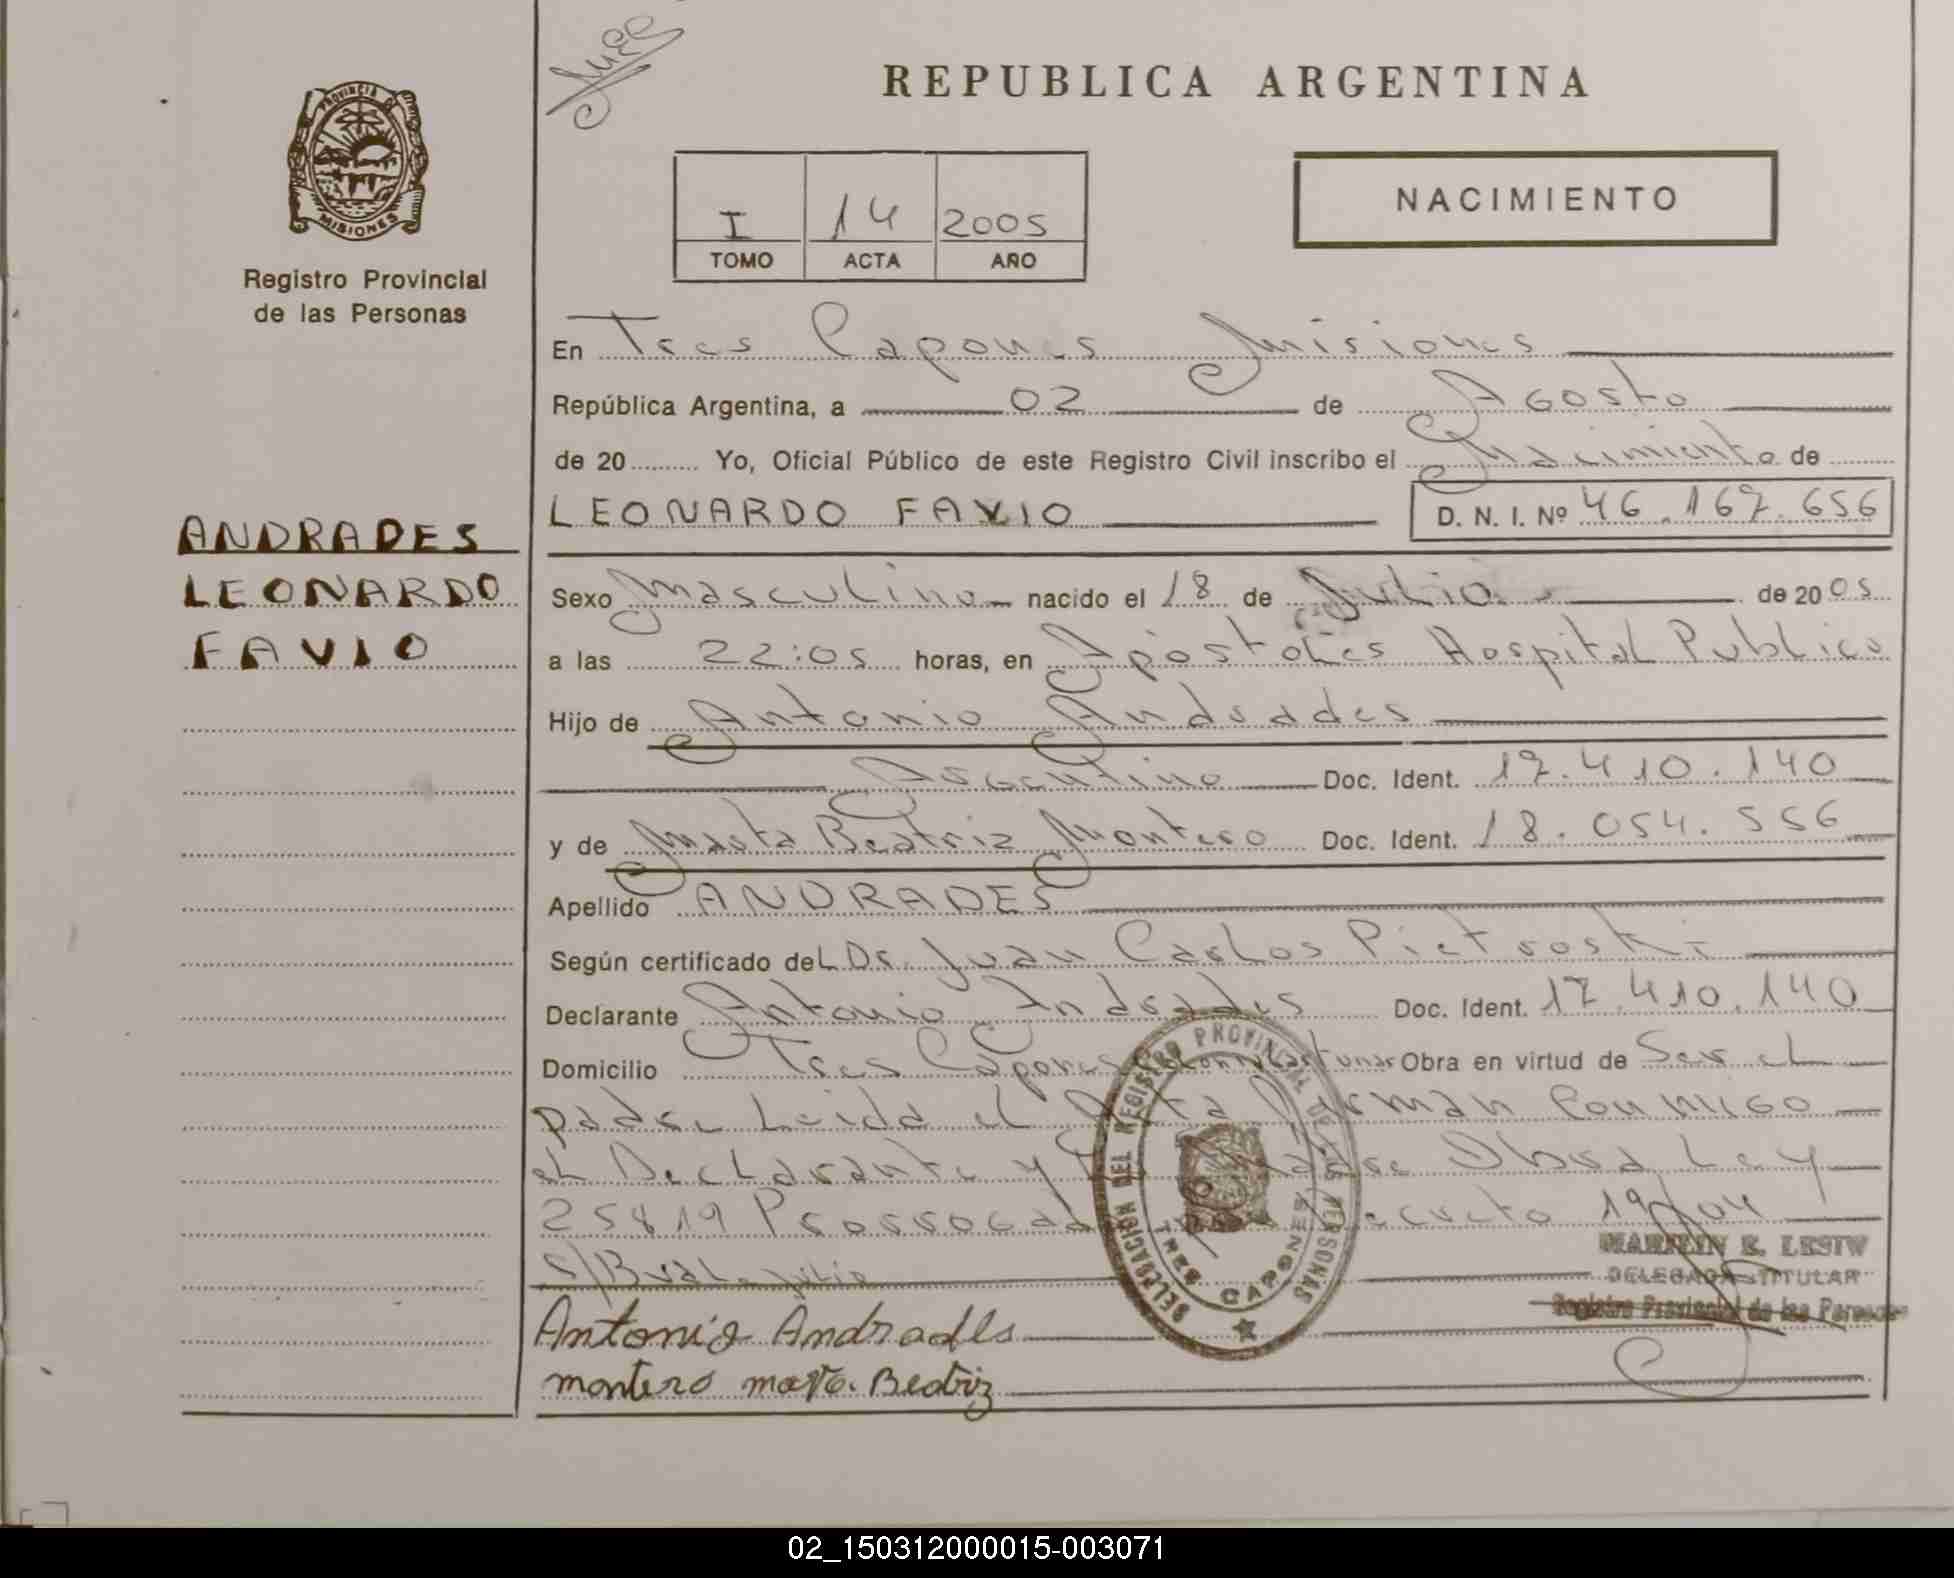 PROVINCIA D
MISIONES
Registro Provincial
de las Personas
REPUBLICA ARGENTINA
NACIMIENTO
I 14 2005
TOMO ACTA AÑO
En Tres Capones Misiones
República Argentina, a 02 de Agosto
de 20 Yo, Oficial Público de este Registro Civil inscribo el Nacimiento de
LEONARDO FAVIO D. N. I. Nº 46.167.656
ANDRADES
LEONARDO
FAVIO
Sexo Masculino nacido el 18 de Julio de 2005
a las 22:05 horas, en Apóstoles Hospital Publico
Hijo de Antonio Andrades
Argentino Doc. Ident. 17.410.140
y de Marta Beatriz Montero Doc. Ident. 18.054.556
Apellido ANDRADES
Según certificado del Dr. Juan Carlos Pietroski
Declarante Antonio Andrades Doc. Ident. 17.410.140
Domicilio Tres Capones Obra en virtud de Ser el
padre Leida el Acta Firman Conmigo
el Declarante y la Madre Obra Ley
25819 Prorrogada Decreto 19/04
s/B Vale Julio
Antonio Andrades
montero marta Beatriz
DELEGACION DEL REGISTRO PROVINCIAL DE LAS PERSONAS
TRES CAPONES
E. LESIW
DELEGADA TITULAR
Registro Provincial de las Personas
02_150312000015-003071